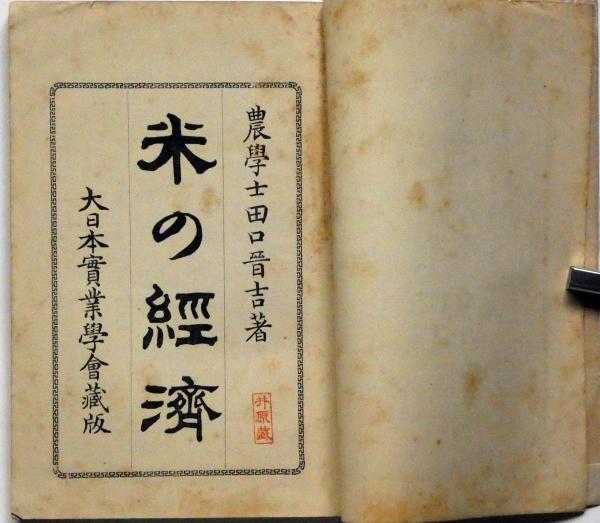 農學士田口晉吉著
米の經濟
大日本實業學會藏版
井原藏